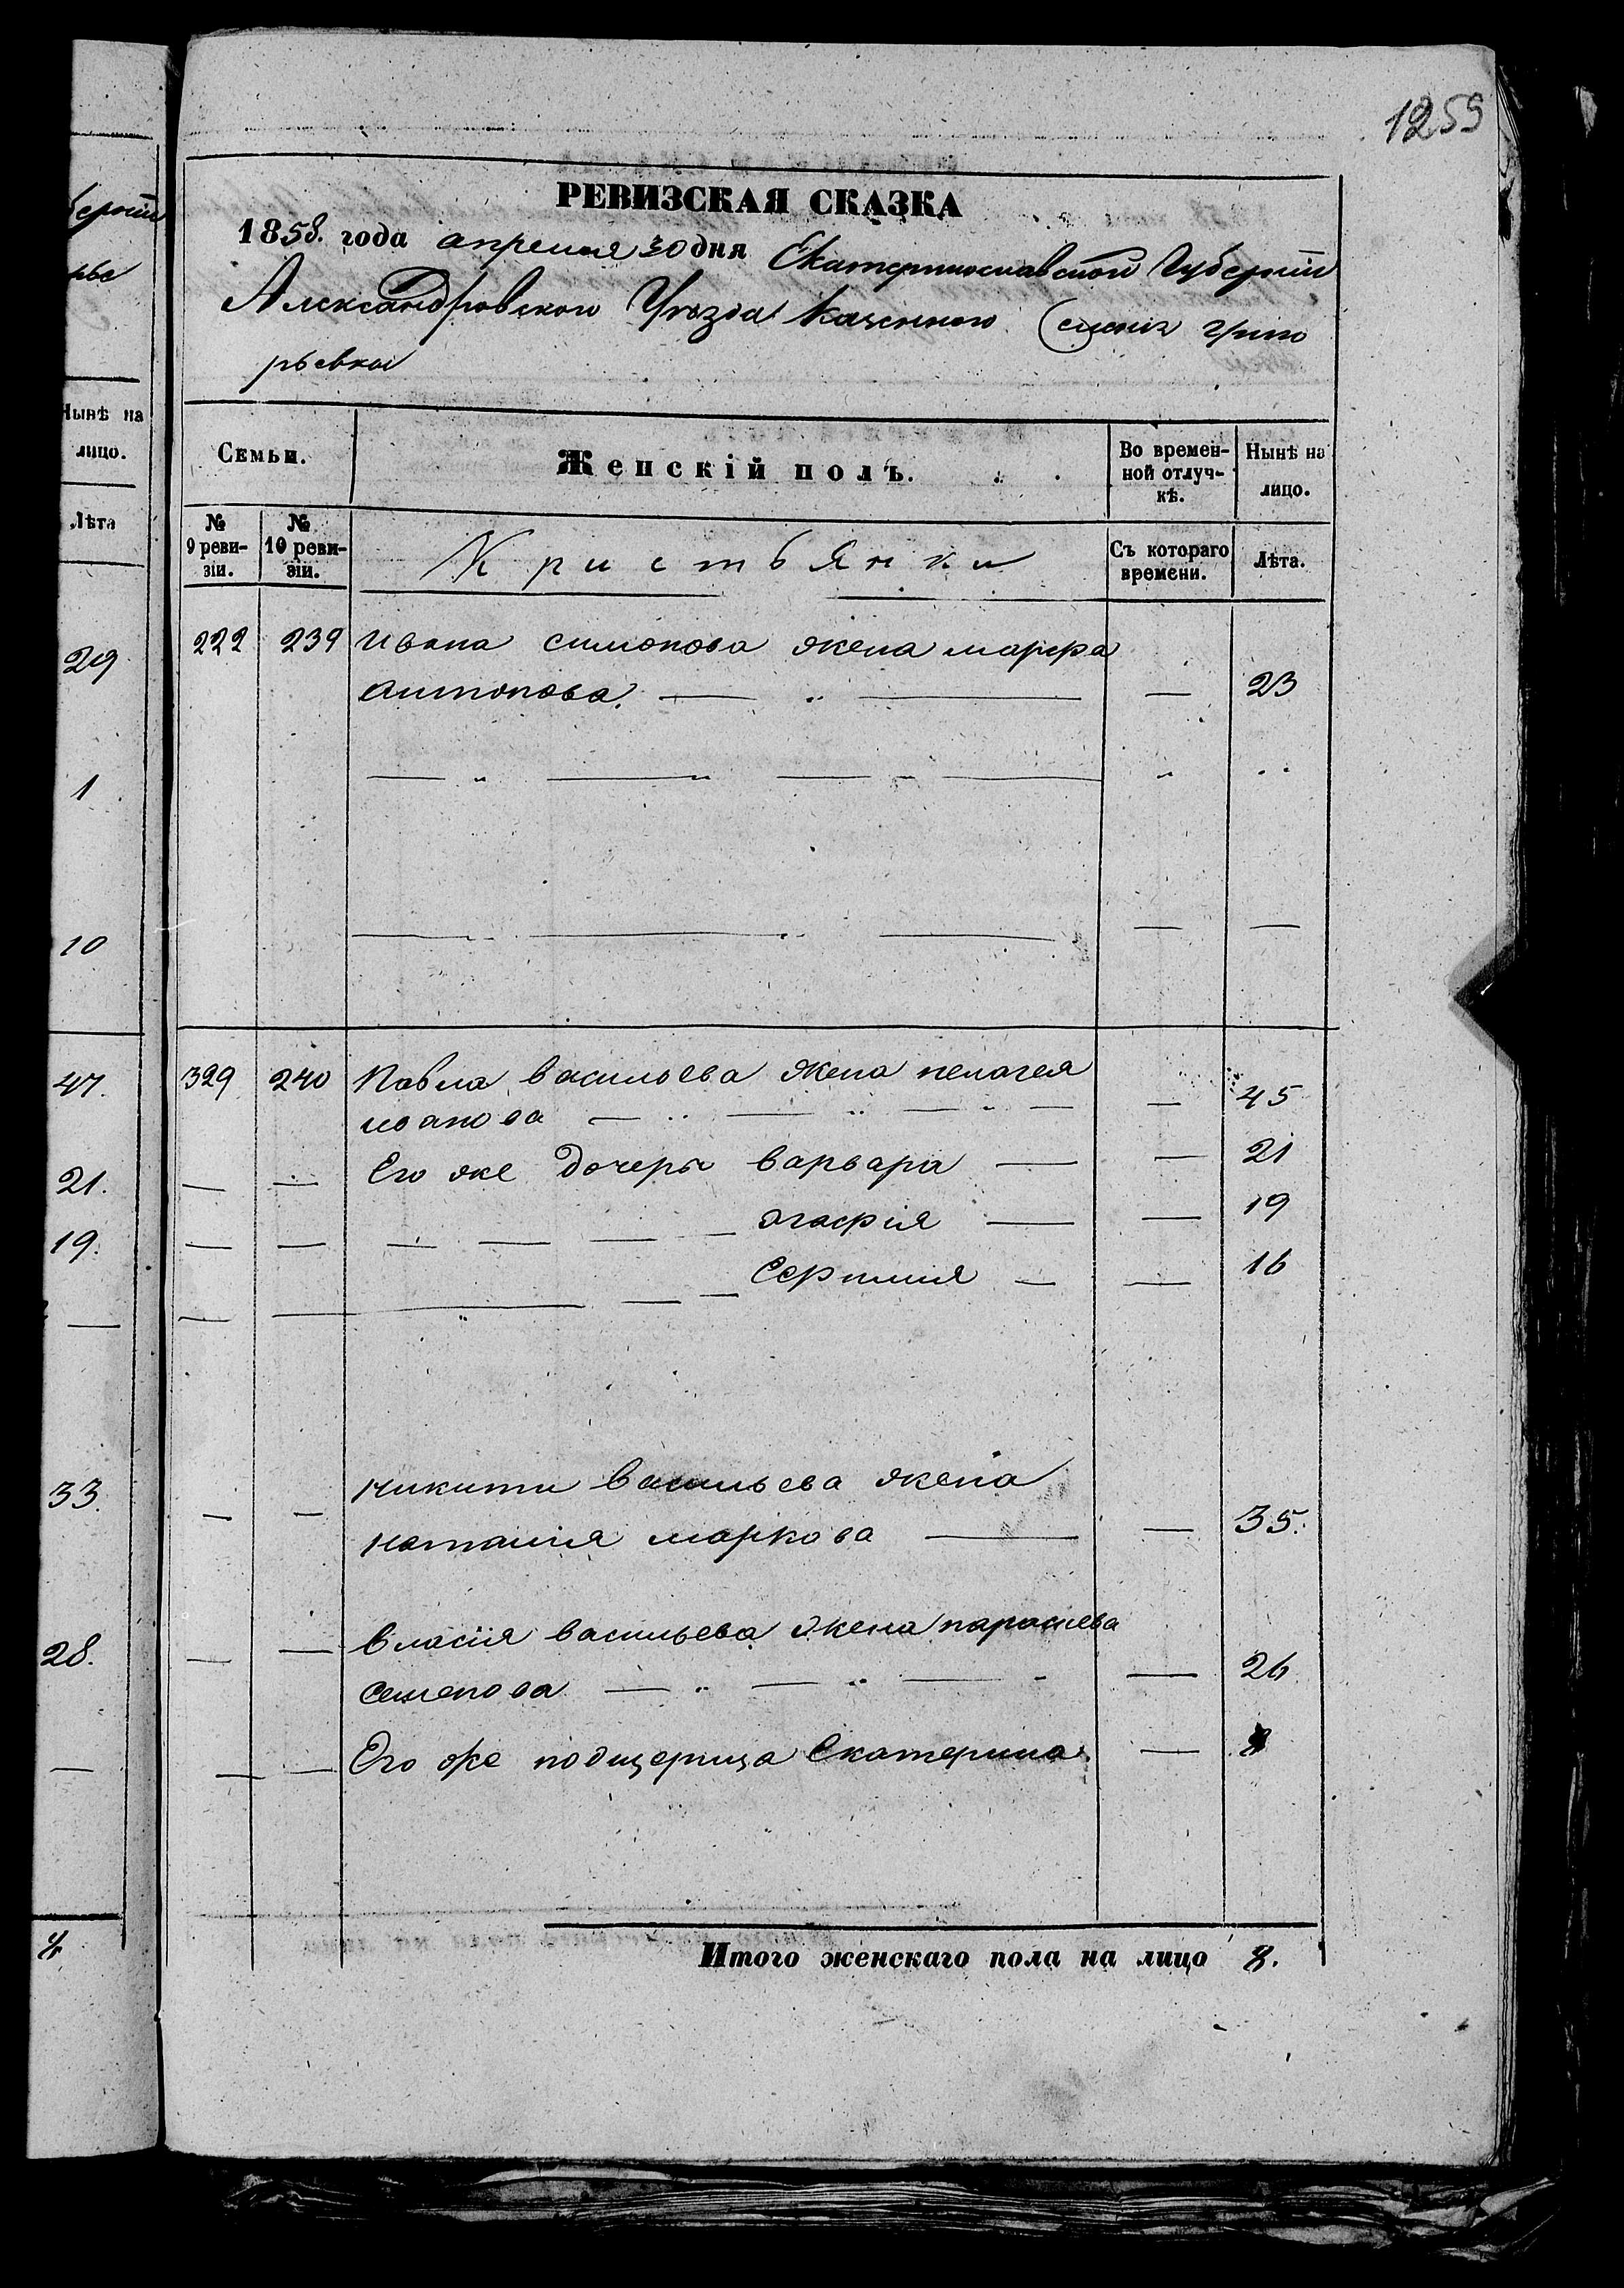 1259
РЕВИЗСКАЯ СКАЗКА
1858. года апреля 30 дня Екатеринославской Губернии
Александровскои Уезда Казенного Григо
рьевки
Семьи.
Женскій полъ.
Во времен-
ной отлуч-
кѣ.
Нынѣ на
лицо.
№
9 реви-
зіи.
№
10 реви-
зіи.
Кристьянки
Съ котораго
времени.
Лѣта.
222 239 Ивана симонова жена марфа
антонова. — — — 23
329 240 Павла васильева жена пелагея
иванова — — — — 45
Его же дочери варвара — — 21
агафия — — 19
— — 16
никити васильева жена
наталия маркова — — 35.
власия васильева жена парасκева
семенова — — — — 26
Его же подщерица Екатерина —
Итого женскаго пола на лицо 8.
Нынѣ на
лицо.
Лѣта
29
1
10
47.
21.
19.
33.
28.